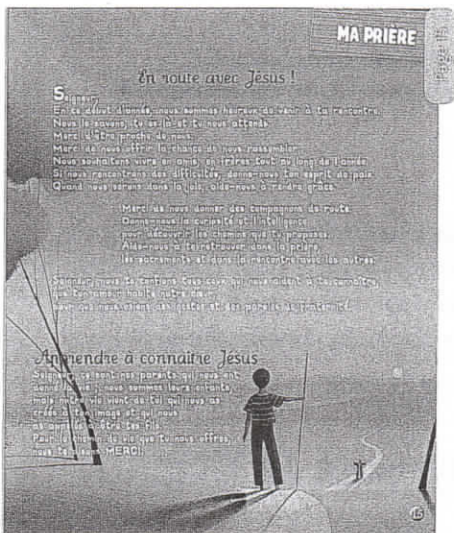 MA PRIÈRE
Page 15
En route avec Jésus !
Seigneur,
En ce début d'année, nous sommes heureux de venir à ta rencontre.
Nous le savons, tu es là et tu nous attends.
Merci d'être proche de nous.
Merci de nous offrir la chance de nous rassembler.
Nous souhaitons vivre en amis, en frères tout au long de l'année.
Si nous rencontrons des difficultés, donne-nous ton esprit de paix.
Quand nous serons dans la joie, aide-nous à rendre grâce.
Merci de nous donner des compagnons de route.
Donne-nous la curiosité et l'intelligence
pour découvrir les chemins que tu proposes.
Aide-nous à te retrouver dans la prière,
les sacrements et dans la rencontre avec les autres.
Seigneur, nous te confions tous ceux qui nous aident à te connaître,
que ton amour habite notre cœur
pour que nous ayons des gestes et des paroles de
Apprendre à connaître Jésus
Seigneur, ce sont nos parents qui nous ont
donné la vie, nous sommes leurs enfants
mais notre vie vient de toi qui nous as
créés à ton image et qui nous
as appelés à être tes fils.
Pour le chemin de vie que tu nous offres,
nous te disons MERCI!
15